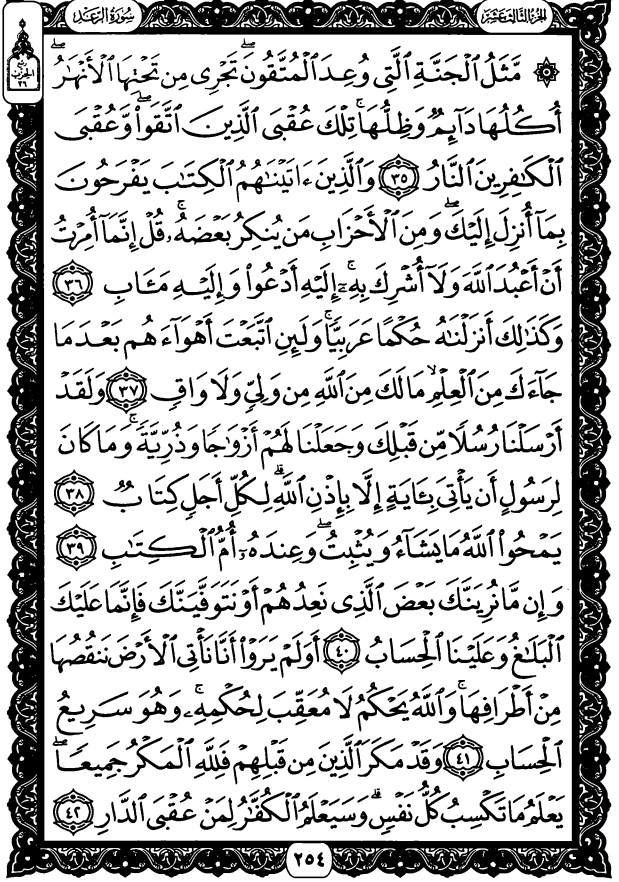 الجزء الثالث عشر
سورة الرعد
ربع
الحزب
٢٦
۞ مَّثَلُ الْجَنَّةِ الَّتِي وُعِدَ الْمُتَّقُونَ ۖ تَجْرِي مِن تَحْتِهَا الْأَنْهَارُ ۖ
أُكُلُهَا دَائِمٌ وَظِلُّهَا ۚ تِلْكَ عُقْبَى الَّذِينَ اتَّقَوا ۖ وَّعُقْبَى
الْكَافِرِينَ النَّارُ ٣٥ وَالَّذِينَ ءَاتَيْنَاهُمُ الْكِتَابَ يَفْرَحُونَ
بِمَا أُنزِلَ إِلَيْكَ ۖ وَمِنَ الْأَحْزَابِ مَن يُنكِرُ بَعْضَهُ ۚ قُلْ إِنَّمَا أُمِرْتُ
أَنْ أَعْبُدَ اللَّهَ وَلَا أُشْرِكَ بِهِ ۚ إِلَيْهِ أَدْعُوا وَإِلَيْهِ مَـَٔابِ ٣٦
وَكَذَٰلِكَ أَنزَلْنَاهُ حُكْمًا عَرَبِيًّا ۚ وَلَئِنِ اتَّبَعْتَ أَهْوَاءَهُم بَعْدَ مَا
جَاءَكَ مِنَ الْعِلْمِ مَا لَكَ مِنَ اللَّهِ مِن وَلِيٍّ وَلَا وَاقٍ ٣٧ وَلَقَدْ
أَرْسَلْنَا رُسُلًا مِّن قَبْلِكَ وَجَعَلْنَا لَهُمْ أَزْوَاجًا وَذُرِّيَّةً ۚ وَمَا كَانَ
لِرَسُولٍ أَن يَأْتِيَ بِـَٔايَةٍ إِلَّا بِإِذْنِ اللَّهِ ۗ لِكُلِّ أَجَلٍ كِتَابٌ ٣٨
يَمْحُوا اللَّهُ مَا يَشَاءُ وَيُثْبِتُ ۖ وَعِندَهُ أُمُّ الْكِتَابِ ٣٩
وَإِن مَّا نُرِيَنَّكَ بَعْضَ الَّذِي نَعِدُهُمْ أَوْ نَتَوَفَّيَنَّكَ فَإِنَّمَا عَلَيْكَ
الْبَلَاغُ وَعَلَيْنَا الْحِسَابُ ٤٠ أَوَلَمْ يَرَوْا أَنَّا نَأْتِي الْأَرْضَ نَنقُصُهَا
مِنْ أَطْرَافِهَا ۚ وَاللَّهُ يَحْكُمُ لَا مُعَقِّبَ لِحُكْمِهِ ۚ وَهُوَ سَرِيعُ
الْحِسَابِ ٤١ وَقَدْ مَكَرَ الَّذِينَ مِن قَبْلِهِمْ فَلِلَّهِ الْمَكْرُ جَمِيعًا ۖ
يَعْلَمُ مَا تَكْسِبُ كُلُّ نَفْسٍ ۗ وَسَيَعْلَمُ الْكُفَّارُ لِمَنْ عُقْبَى الدَّارِ ٤٢
٢٥٤